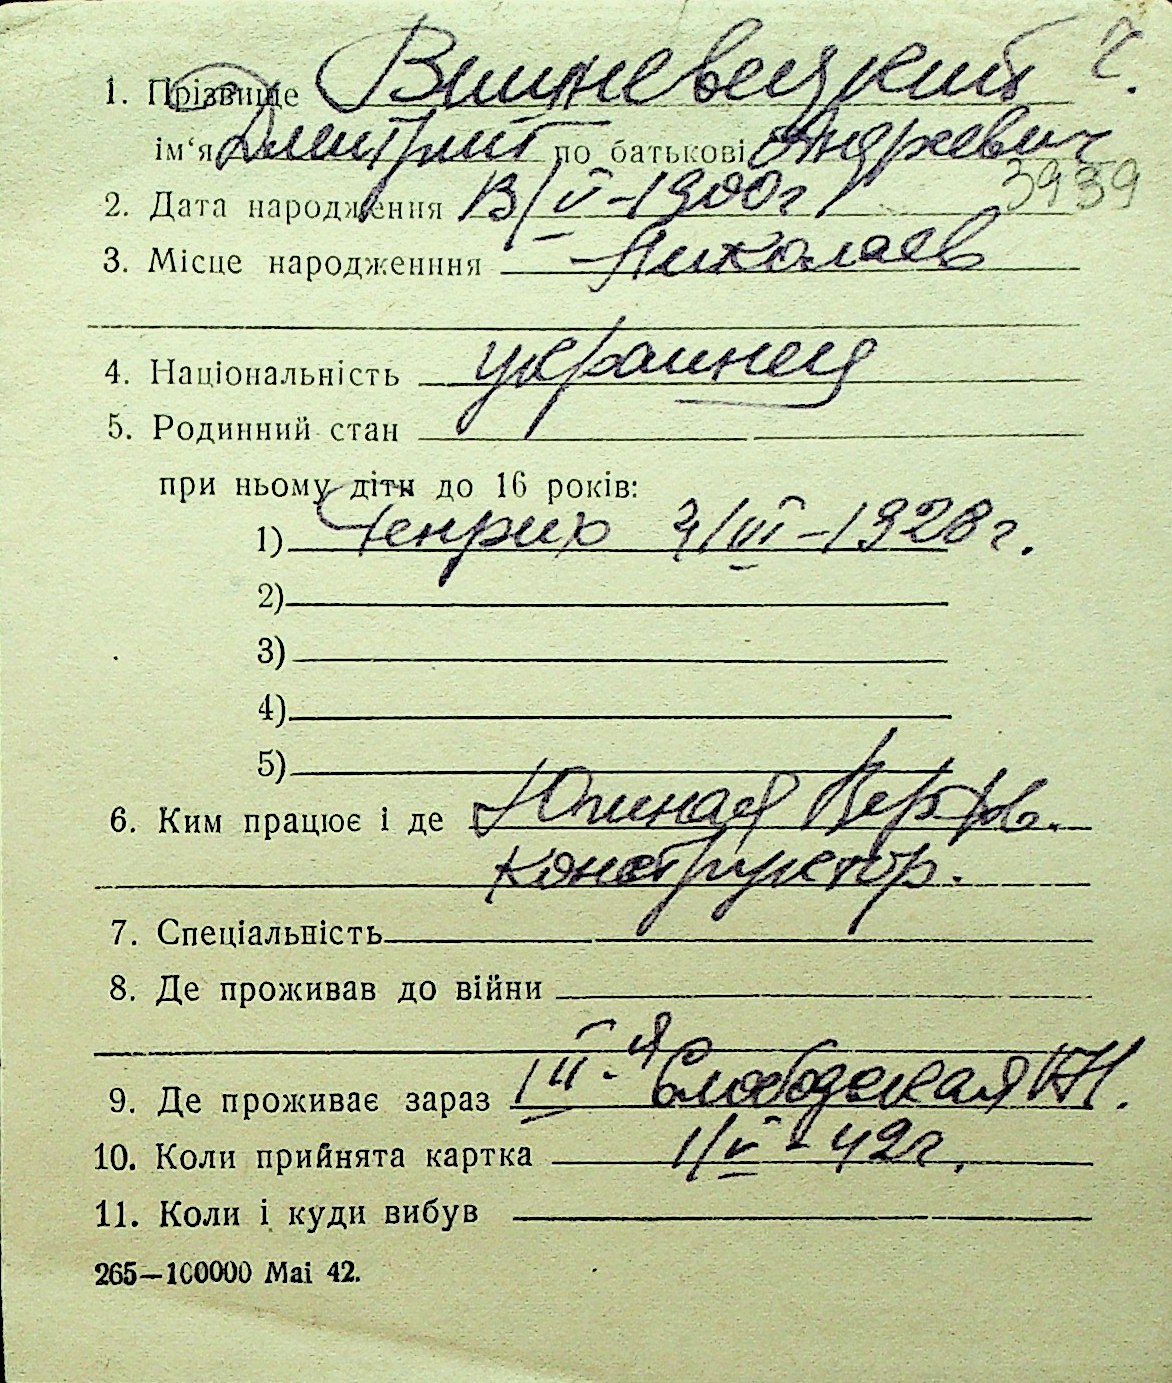 1. Прізвище Вишневецкий ч.
ім‘я Дмитрий по батькові Андреевич
3939
2. Дата народження 13/V-1900г
3. Місце народженння Николаев
4. Національність украинец
5. Родинний стан
при ньому діти до 16 років:
1) Генрих 3/III-1928г.
2)
3)
4)
5)
6. Ким працює і де
конструктор.
7. Спеціальність
8. Де проживав до війни
9. Де проживає зараз III-я Слободская
10. Коли прийнята картка 1/V-42г.
11. Коли і куди вибув
265—100000 Mai 42.